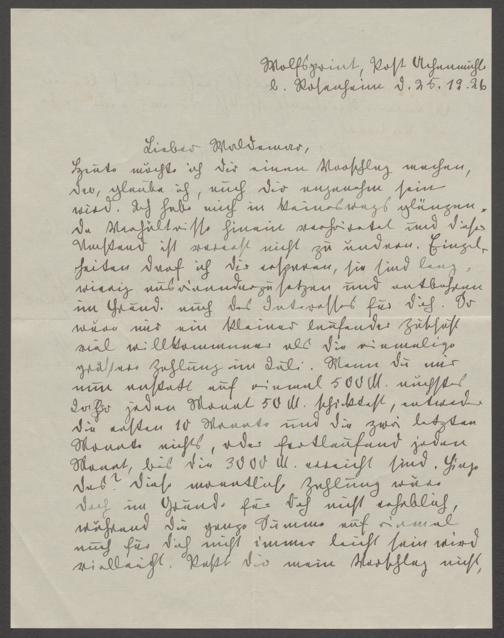 Wolfsgrint, Post Achenmühle
b. Rosenheim d. 25. 12. 26
Lieber Waldemar,
Heute möchte ich dir einen Vorschlag machen,
der, glaube ich, auch dir angenehm sein
wird. Ich habe mich in keineswegs glänzen-
de Verhältnisse hinein verheiratet und dieser
Umstand ist vorerst nicht zu ändern. Einzel-
heiten darf ich dir ersparen, sie sind lang-
wierig auseinanderzusetzen und entbehren
im Grund auch des Interesses für dich. Da
wäre mir ein kleiner laufender Zuschuß
viel willkommener als die einmalige
größere Zahlung im Juli. Wenn du mir
nun anstatt auf einmal 500 M. nächstes
Jahr jeden Monat 50 M. schicktest, entweder
die ersten 10 Monate und die zwei letzten
Monate nichts, oder fortlaufend jeden
Monat, bis die 3000 M. erreicht sind. Ginge
das? Diese monatliche Zahlung wäre
doch im Grunde für dich nicht erheblich,
während die ganze Summe auf einmal
auch für dich nicht immer leicht sein wird
vielleicht. Paßt dir mein Vorschlag nicht,